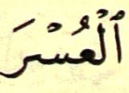 ٱلْعُسْرَ